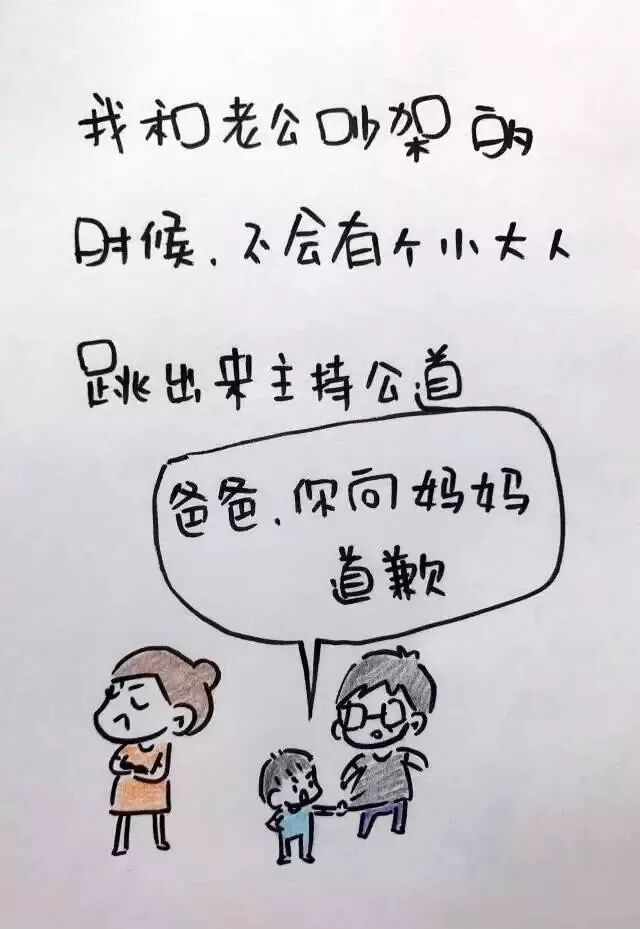 我和老公吵架的
时候.不会有个小大人
跳出来主持公道
爸爸.你向妈妈
道歉